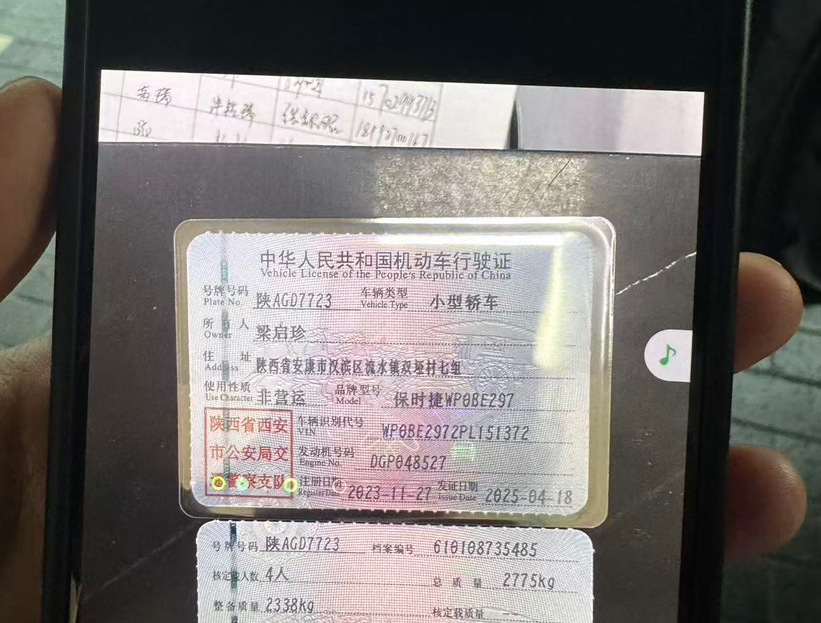 中华人民共和国机动车行驶证
Vehicle License of the People's Republic of China
号牌号码 陕AGD7723 车辆类型 小型轿车
Plate No. Vehicle Type
所有人 梁启珍
Owner
住址 陕西省安康市汉滨区流水镇双垭村七组
Address
使用性质 非营运 品牌型号 保时捷WP0BE297
Use Character Model
陕西省西安
市公安局交
通警察支队
车辆识别代号 WP0BE2972PL151372
VIN
发动机号码 DGP048527
Engine No.
注册日期 2023-11-27 发证日期 2025-04-18
Register Date Issue Date
号牌号码 陕AGD7723 档案编号 610108735485
核定载人数 4人 总质量 2775kg
整备质量 2338kg 核定载质量 --